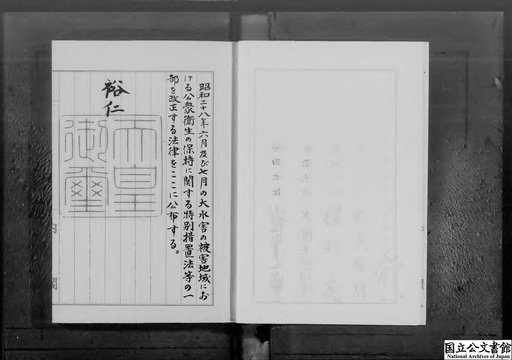 昭和二十八年六月及び七月の大水害の被害地域にお
ける公衆衛生の保持に関する特別措置法等の一
部を改正する法律をここに公布する。
裕仁
天皇
御璽
国立公文書館
National Archives of Japan